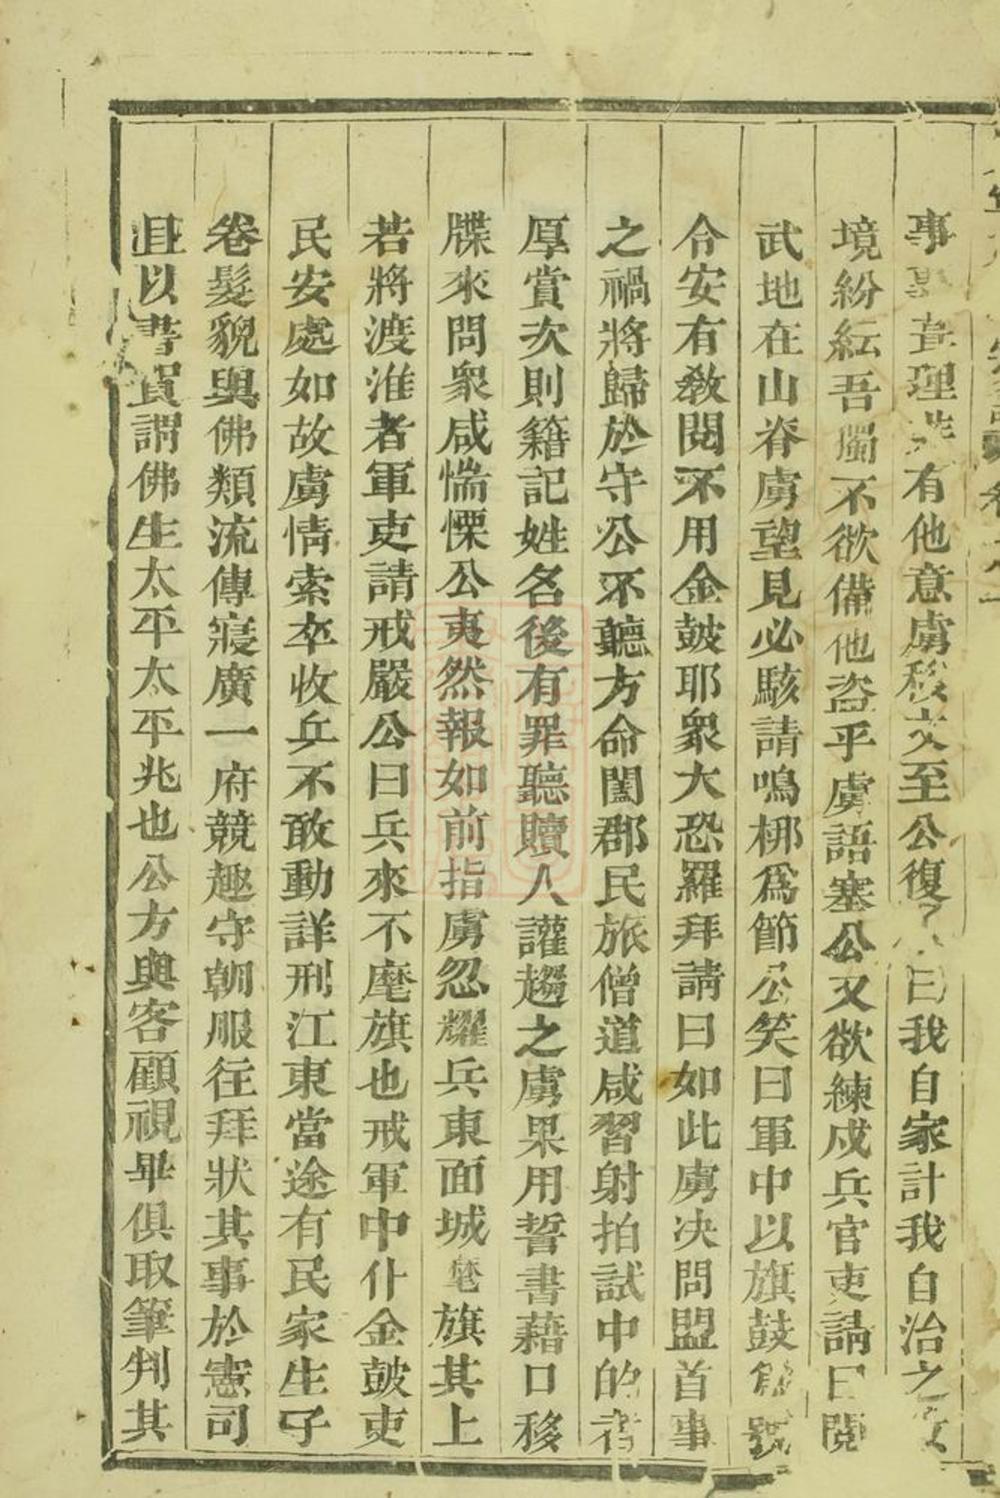 事 理 有他意虜移文至公復 曰我自家計我自治之
境紛紜吾獨不欲備他盗乎虜語塞公又欲練戍兵官吏請曰閱
武地在山脊虜望見必駭請鳴梆爲節公笑曰軍中以旗鼓 號
令安有敎閱不用金皷耶衆大恐羅拜請曰如此虜决問盟首事
之禍將歸於守公不聽方命闔郡民旅僧道咸習射拍試中的者
厚賞次則籍記姓名後有罪聽贖人讙趨之虜果用誓書藉口移
牒來問衆咸惴慄公夷然報如前指虜忽耀兵東面城麾旗其上
若將渡淮者軍吏請戒嚴公曰兵來不麾旗也戒軍中什金皷吏
民安處如故虜情索卒收兵不敢動詳刑江東當途有民家生子
卷髮貌與佛類流傳寖廣一府競趣守朝服往拜狀其事於憲司
且以書賀謂佛生太平太平兆也公方與客顧視畢俱取筆判其